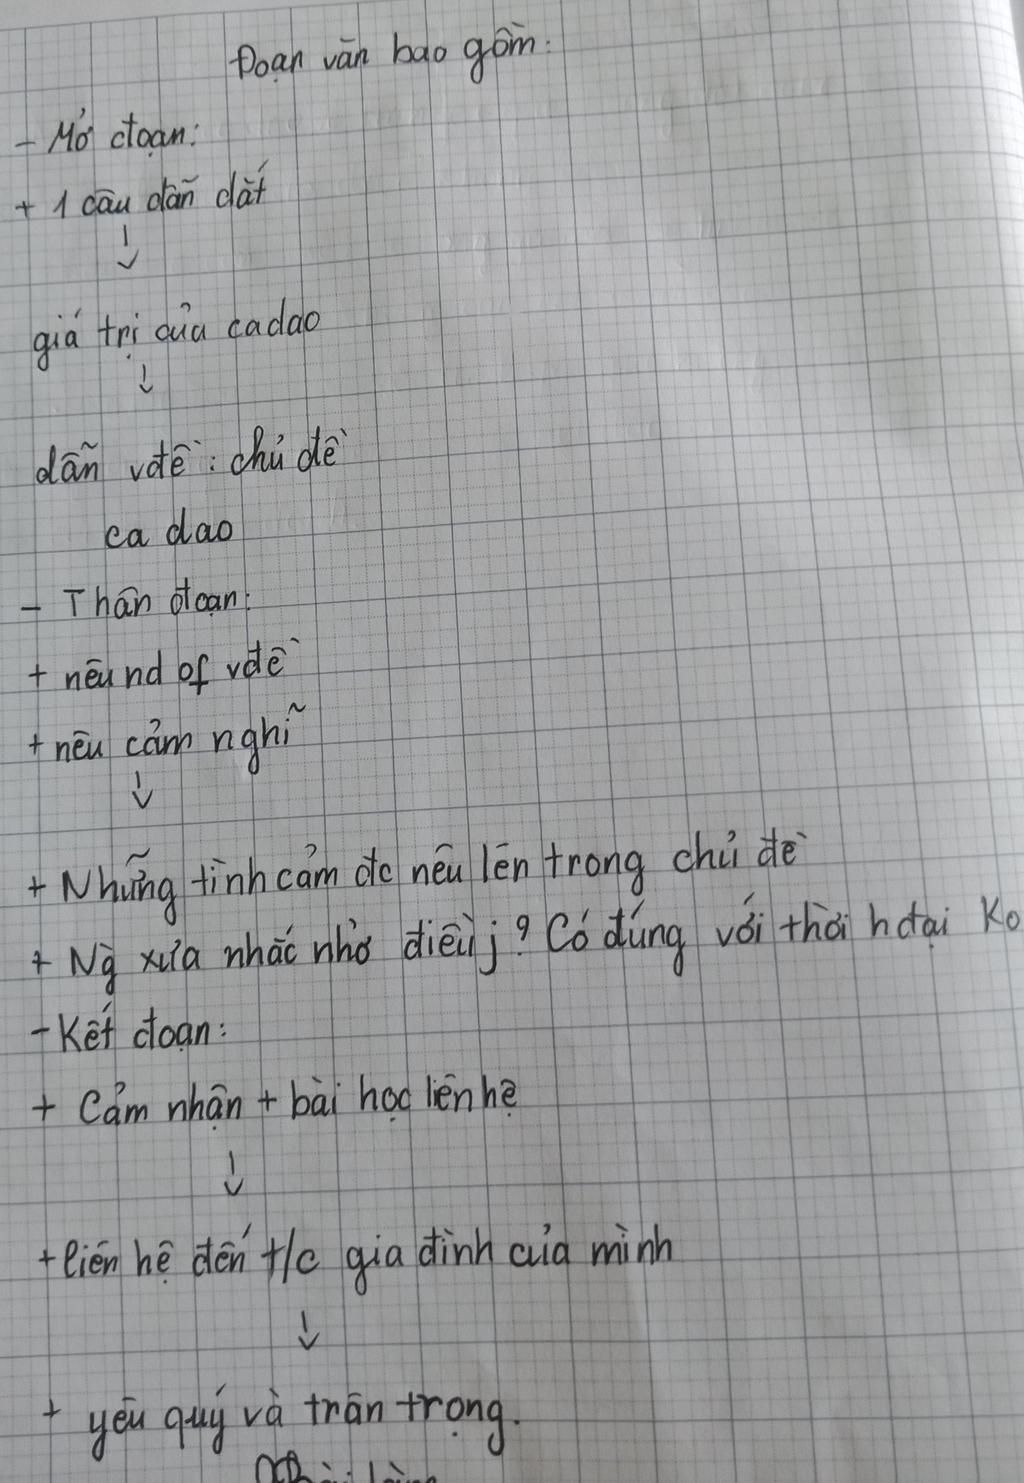 Đoạn văn bao gồm:
- Mở đoạn:
+ 1 câu dẫn dắt
giá trị của ca dao
dẫn vđề : chủ đề
ca dao
- Thân đoạn:
+ nêu nd of vđề
+ nêu cảm nghĩ
+ Những tình cảm đc nêu lên trong chủ đề
+ Ng xưa nhắc nhở điều j? Có đúng với thời hđại ko
- Kết đoạn:
+ Cảm nhận + bài học liên hệ
+ liên hệ đến t/c gia đình của mình
+ yêu quý và trân trọng.